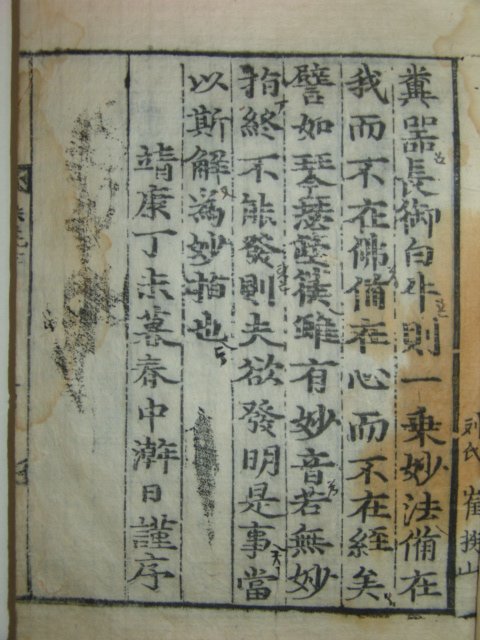 糞器長御白牛則一乗妙法備在
我而不在佛備在心而不在経矣
譬如琴瑟箜篌雖有妙音若無妙
指終不能發則夫欲發明是事當
以斯解為妙指也
靖康丁未暮春中澣日謹序